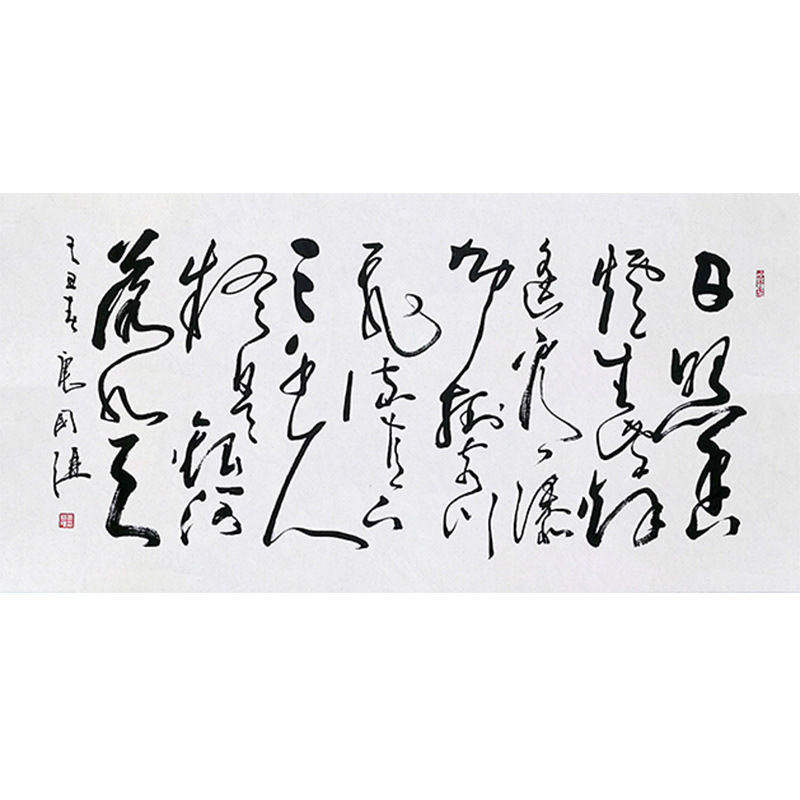 日照香
炉生紫烟
遥看瀑
布掛前川
飛流直下
三千尺
疑是銀河
落九天
辛丑春